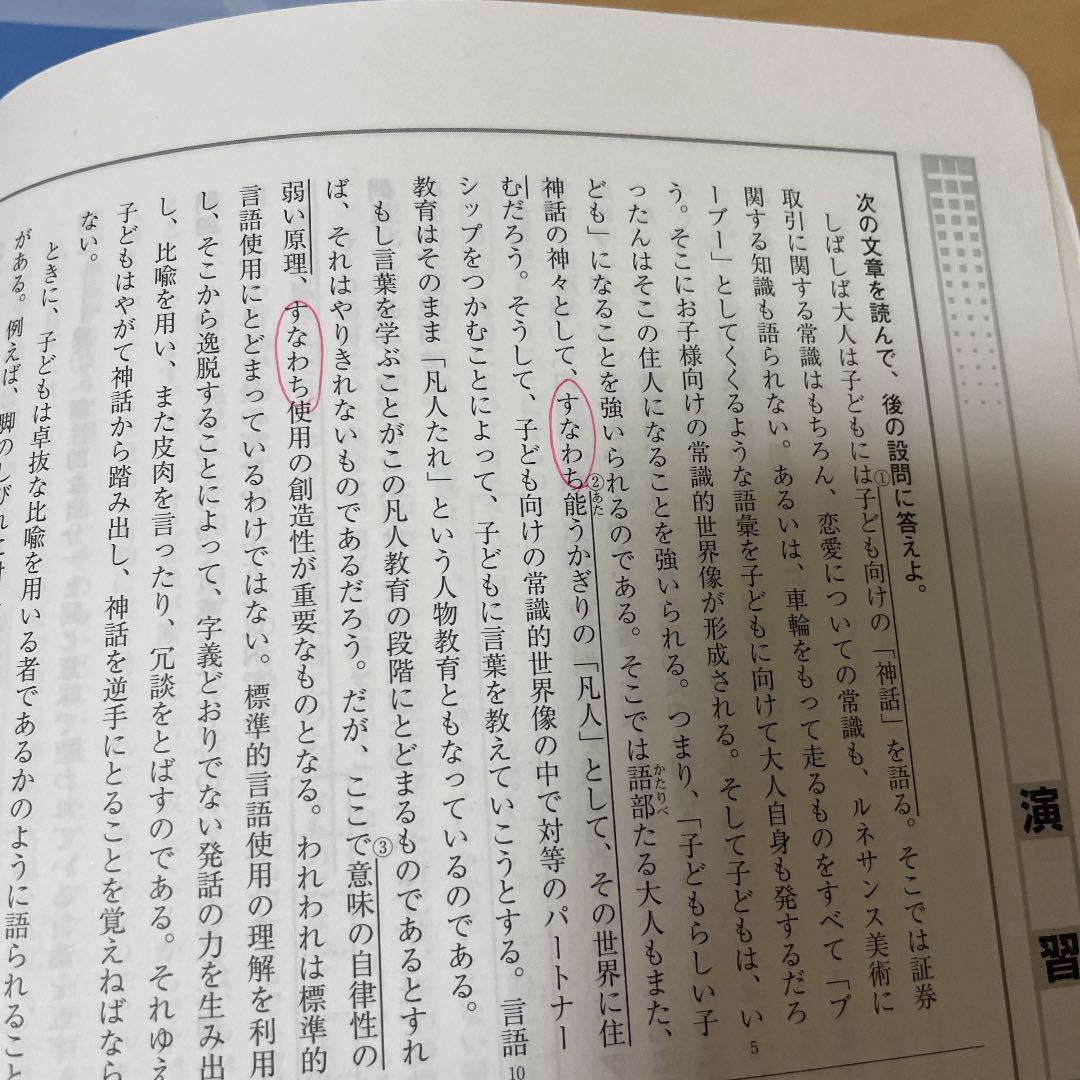 演習
次の文章を読んで、後の設問に答えよ。
しばしば大人は子どもには①子ども向けの「神話」を語る。そこでは証券
取引に関する常識はもちろん、恋愛についての常識も、ルネサンス美術に
関する知識も語られない。あるいは、車輪をもって走るものをすべて「ブ
ーブー」としてくくるような語彙を子どもに向けて大人自身も発するだろ
う。そこにお子様向けの常識的世界像が形成される。そして子どもは、い
ったんはそこの住人になることを強いられる。つまり、「子どもらしい子
ども」になることを強いられるのである。そこでは語部かたりべたる大人もまた、
神話の神々として、すなわち②能あたうかぎりの「凡人」として、その世界に住
むだろう。そうして、子ども向けの常識的世界像の中で対等のパートナー
シップをつかむことによって、子どもに言葉を教えていこうとする。言語
教育はそのまま「凡人たれ」という人物教育ともなっているのである。
もし言葉を学ぶことがこの凡人教育の段階にとどまるものであるとすれ
ば、それはやりきれないものであるだろう。だが、ここで③意味の自律性の
弱い原理、すなわち使用の創造性が重要なものとなる。われわれは標準的
言語使用にとどまっているわけではない。標準的言語使用の理解を利用
し、そこから逸脱することによって、字義どおりでない発話の力を生み出
し、比喩を用い、また皮肉を言ったり、冗談をとばすのである。それゆえ
子どもはやがて神話から踏み出し、神話を逆手にとることを覚えねばなら
ない。
ときに、子どもは卓抜な比喩を用いる者であるかのように語られること
がある。例えば、脚のしびれ
5
10